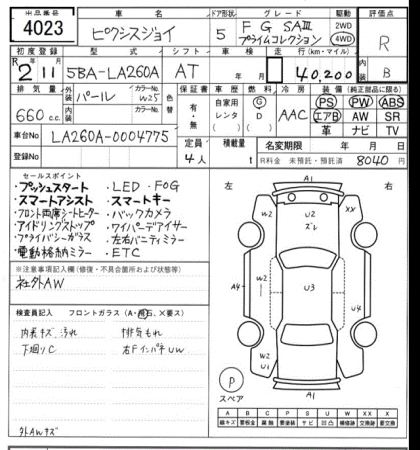 出品番号 車名 ドア形状 グレード 駆動 評価点
4023 ピクシスジョイ 5 F G SAⅢ プライムコレクション 2WD 4WD R
初度登録 型式 シフト 車検 走行(km・マイル)
R2 11 5BA-LA260A AT 年 月 40,200 B
排気量 外装 カラーNo. 色替 保証書 車歴 燃料 冷房 装備(純正部品に限る)
660cc パール W25 有・無 自家用 レンタ G D AAC PS PW ABS
内装 カラーNo. エアB AW SR
革 ナビ TV
車台No LA260A-0004775 定員 積載量 名変期限 年 月 日
4人 t R料金 未預託・預託済 8040 円
セールスポイント
・プッシュスタート ・LED・FOG
・スマートアシスト ・スマートキー
・フロント両席シートヒーター ・バックカメラ
・アイドリングストップ ・ワイパーデアイサー
・プライバシーガラス ・左右バニティミラー
・電動格納ミラー ・ETC
※注意事項記入欄(修復・不具合箇所および状態)
社外AW
検査員記入 フロントガラス(A・飛G、X要ス)
内装キズ 汚れ 排気もれ
下廻りC 右Fインパネ UW
外AWキズ
左 右
A1
W2 U2 ズレ XX
A4 W2 U3 W2 A4
W2 U1
P スペア A1
A B C P S U W XX X
線キズ 要板金 腐蝕 要塗装 サビ 凹凸 補修跡 交換跡 要交換